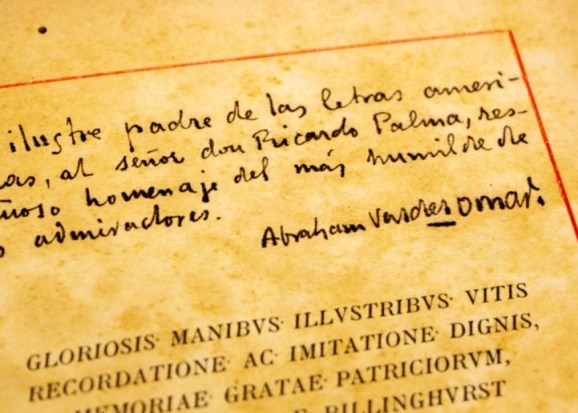 ilustre padre de las letras ameri-
as, al señor don Ricardo Palma, res-
tuoso homenaje del más humilde de
s admiradores.
Abraham Valdelomar.
GLORIOSIS· MANIBVS· ILLVSTRIBVS· VITIS
RECORDATIONE· AC· IMITATIONE· DIGNIS,
MEMORIAE· GRATAE· PATRICIORVM,
BILLINGHVRST